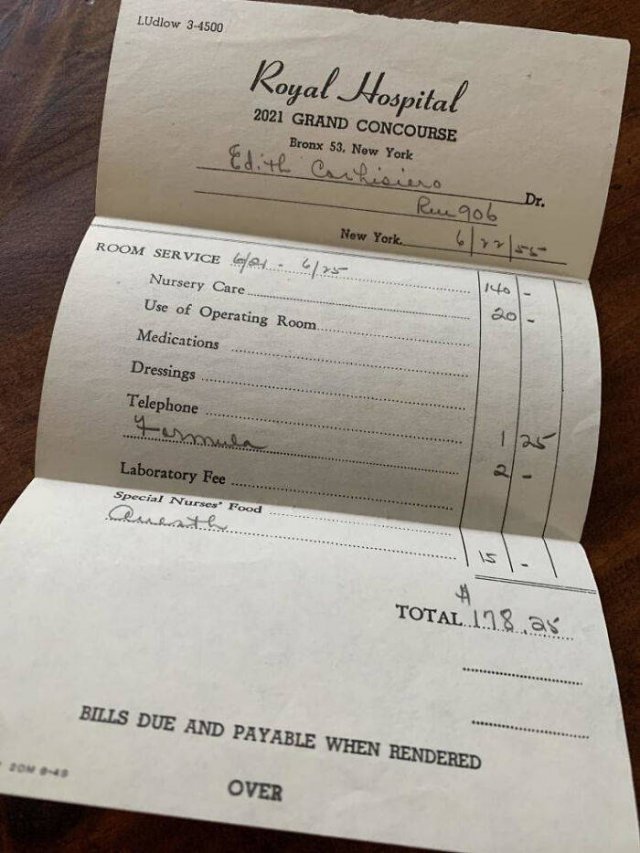 LUdlow 3-4500
Royal Hospital
2021 GRAND CONCOURSE
Bronx 53, New York
Edith
Dr.
Rm 906
New York 6/22/55
ROOM SERVICE 6/21 - 6/25 140 -
Nursery Care 20 -
Use of Operating Room
Medications
Dressings
Telephone 1 25
Formula 2 -
Laboratory Fee
Special Nurses' Food
Anesth 15 -
TOTAL $178.25
BILLS DUE AND PAYABLE WHEN RENDERED
OVER